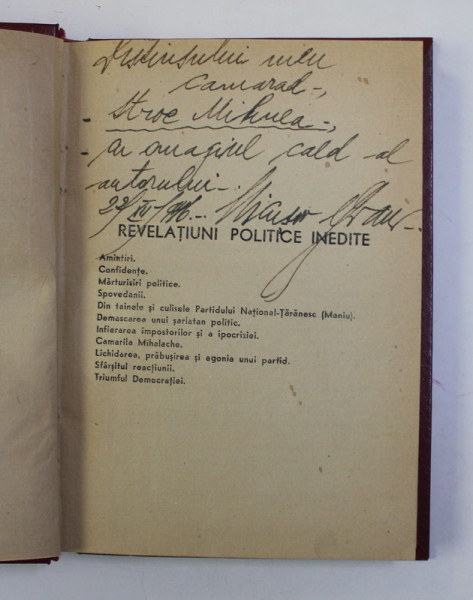 Distinsului meu
camarad-,
- Stroe Mihnea -,
- cu omagiul cald al
autorului -
22/XII/946.-
REVELAȚIUNI POLITICE INEDITE
Amintiri.
Confidențe.
Mărturisiri politice.
Spovedanii.
Din tainele și culisele Partidului Național-Țărănesc (Maniu).
Demascarea unui șarlatan politic.
Infierarea impostorilor și a ipocriziei.
Camarila Mihalache.
Lichidarea, prăbușirea și agonia unui partid.
Sfârșitul reacțiunii.
Triumful Democrației.